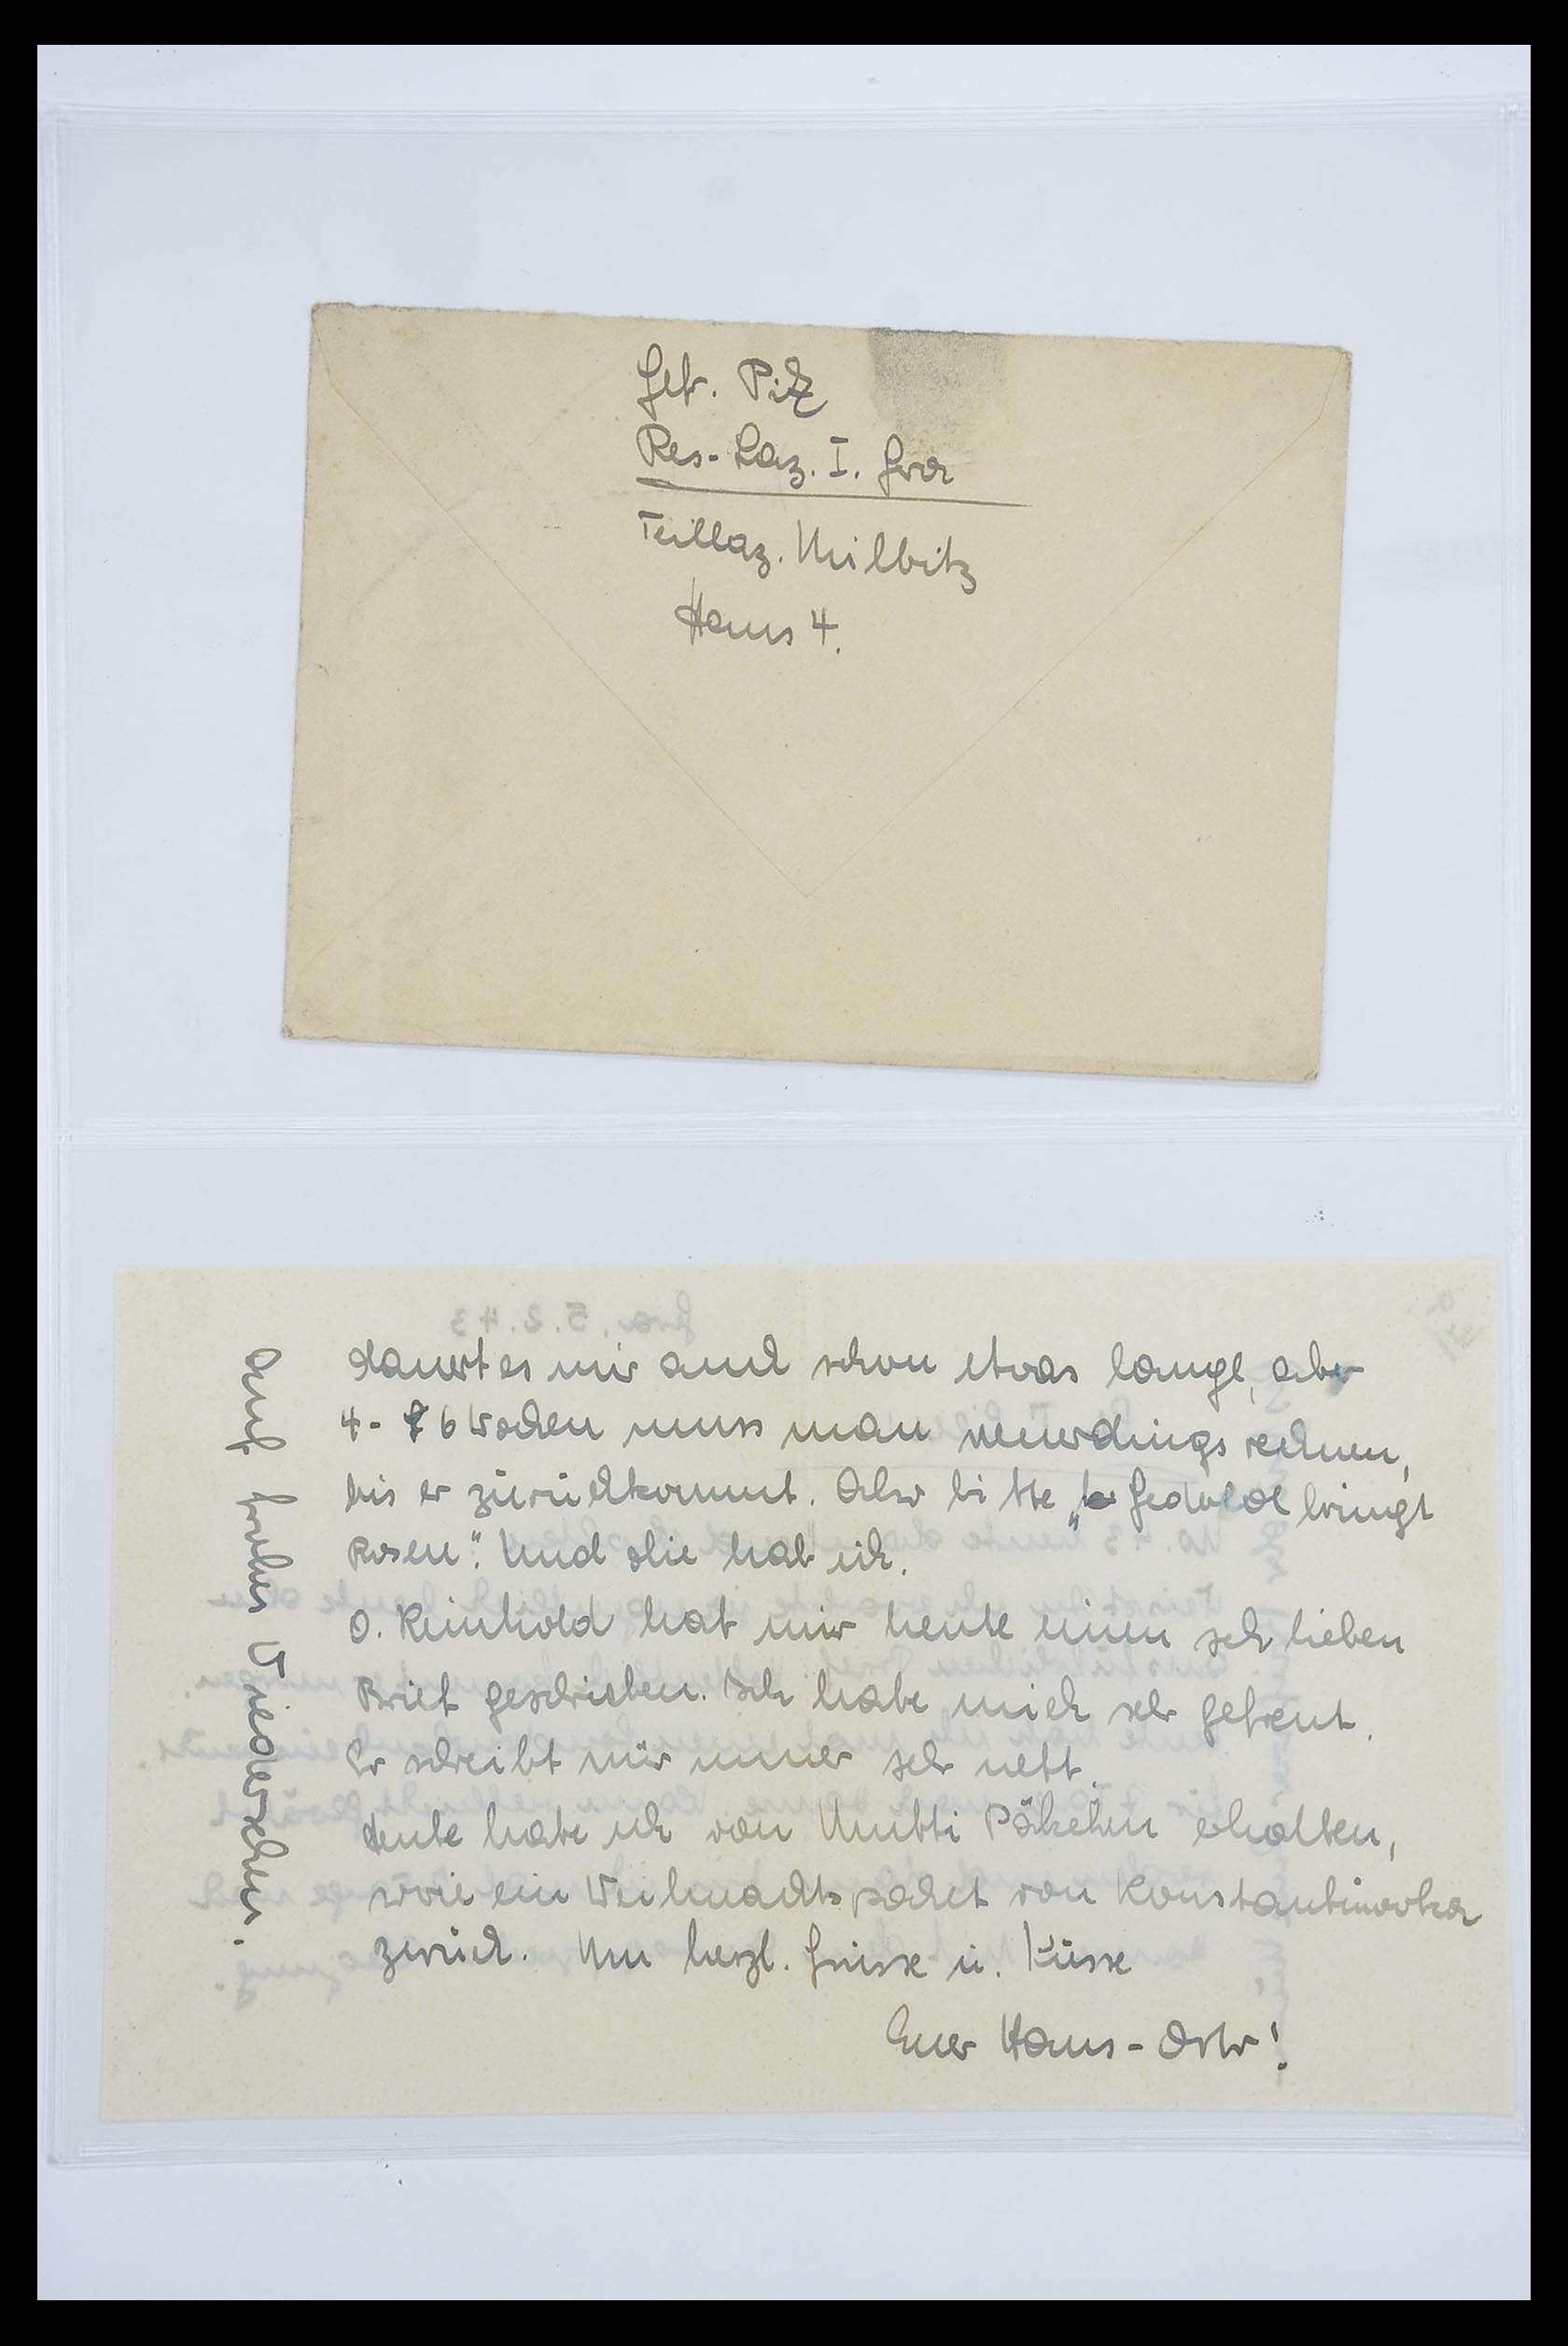 Gefr. Pilz
Res-Laz. I. Gera
Teillaz. Milbitz
Haus 4.
Gera, 5.2.43
dauert es mir auch schon etwas lange, aber
4-6 Wochen muss man neuerdings rechnen,
bis er zurückkommt. Also bitte „Geduld bringt
Rosen“. Und die hab ich.
O. Reinhold hat mir heute einen sehr lieben
Brief geschrieben. Ich habe mich sehr gefreut.
Er schreibt mir immer sehr nett.
Heute habe ich von Mutti Päckchen erhalten,
sowie ein Weihnachtspacket von Konstantinowka
zurück. Nun herzl. Grüsse u. Küsse
Euer Hans-
Auf frohes Wiedersehen.